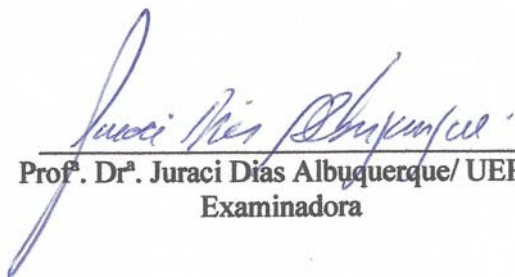 Juraci Dias Albuquerque.
Profª. Drª. Juraci Dias Albuquerque/ UEP
Examinadora